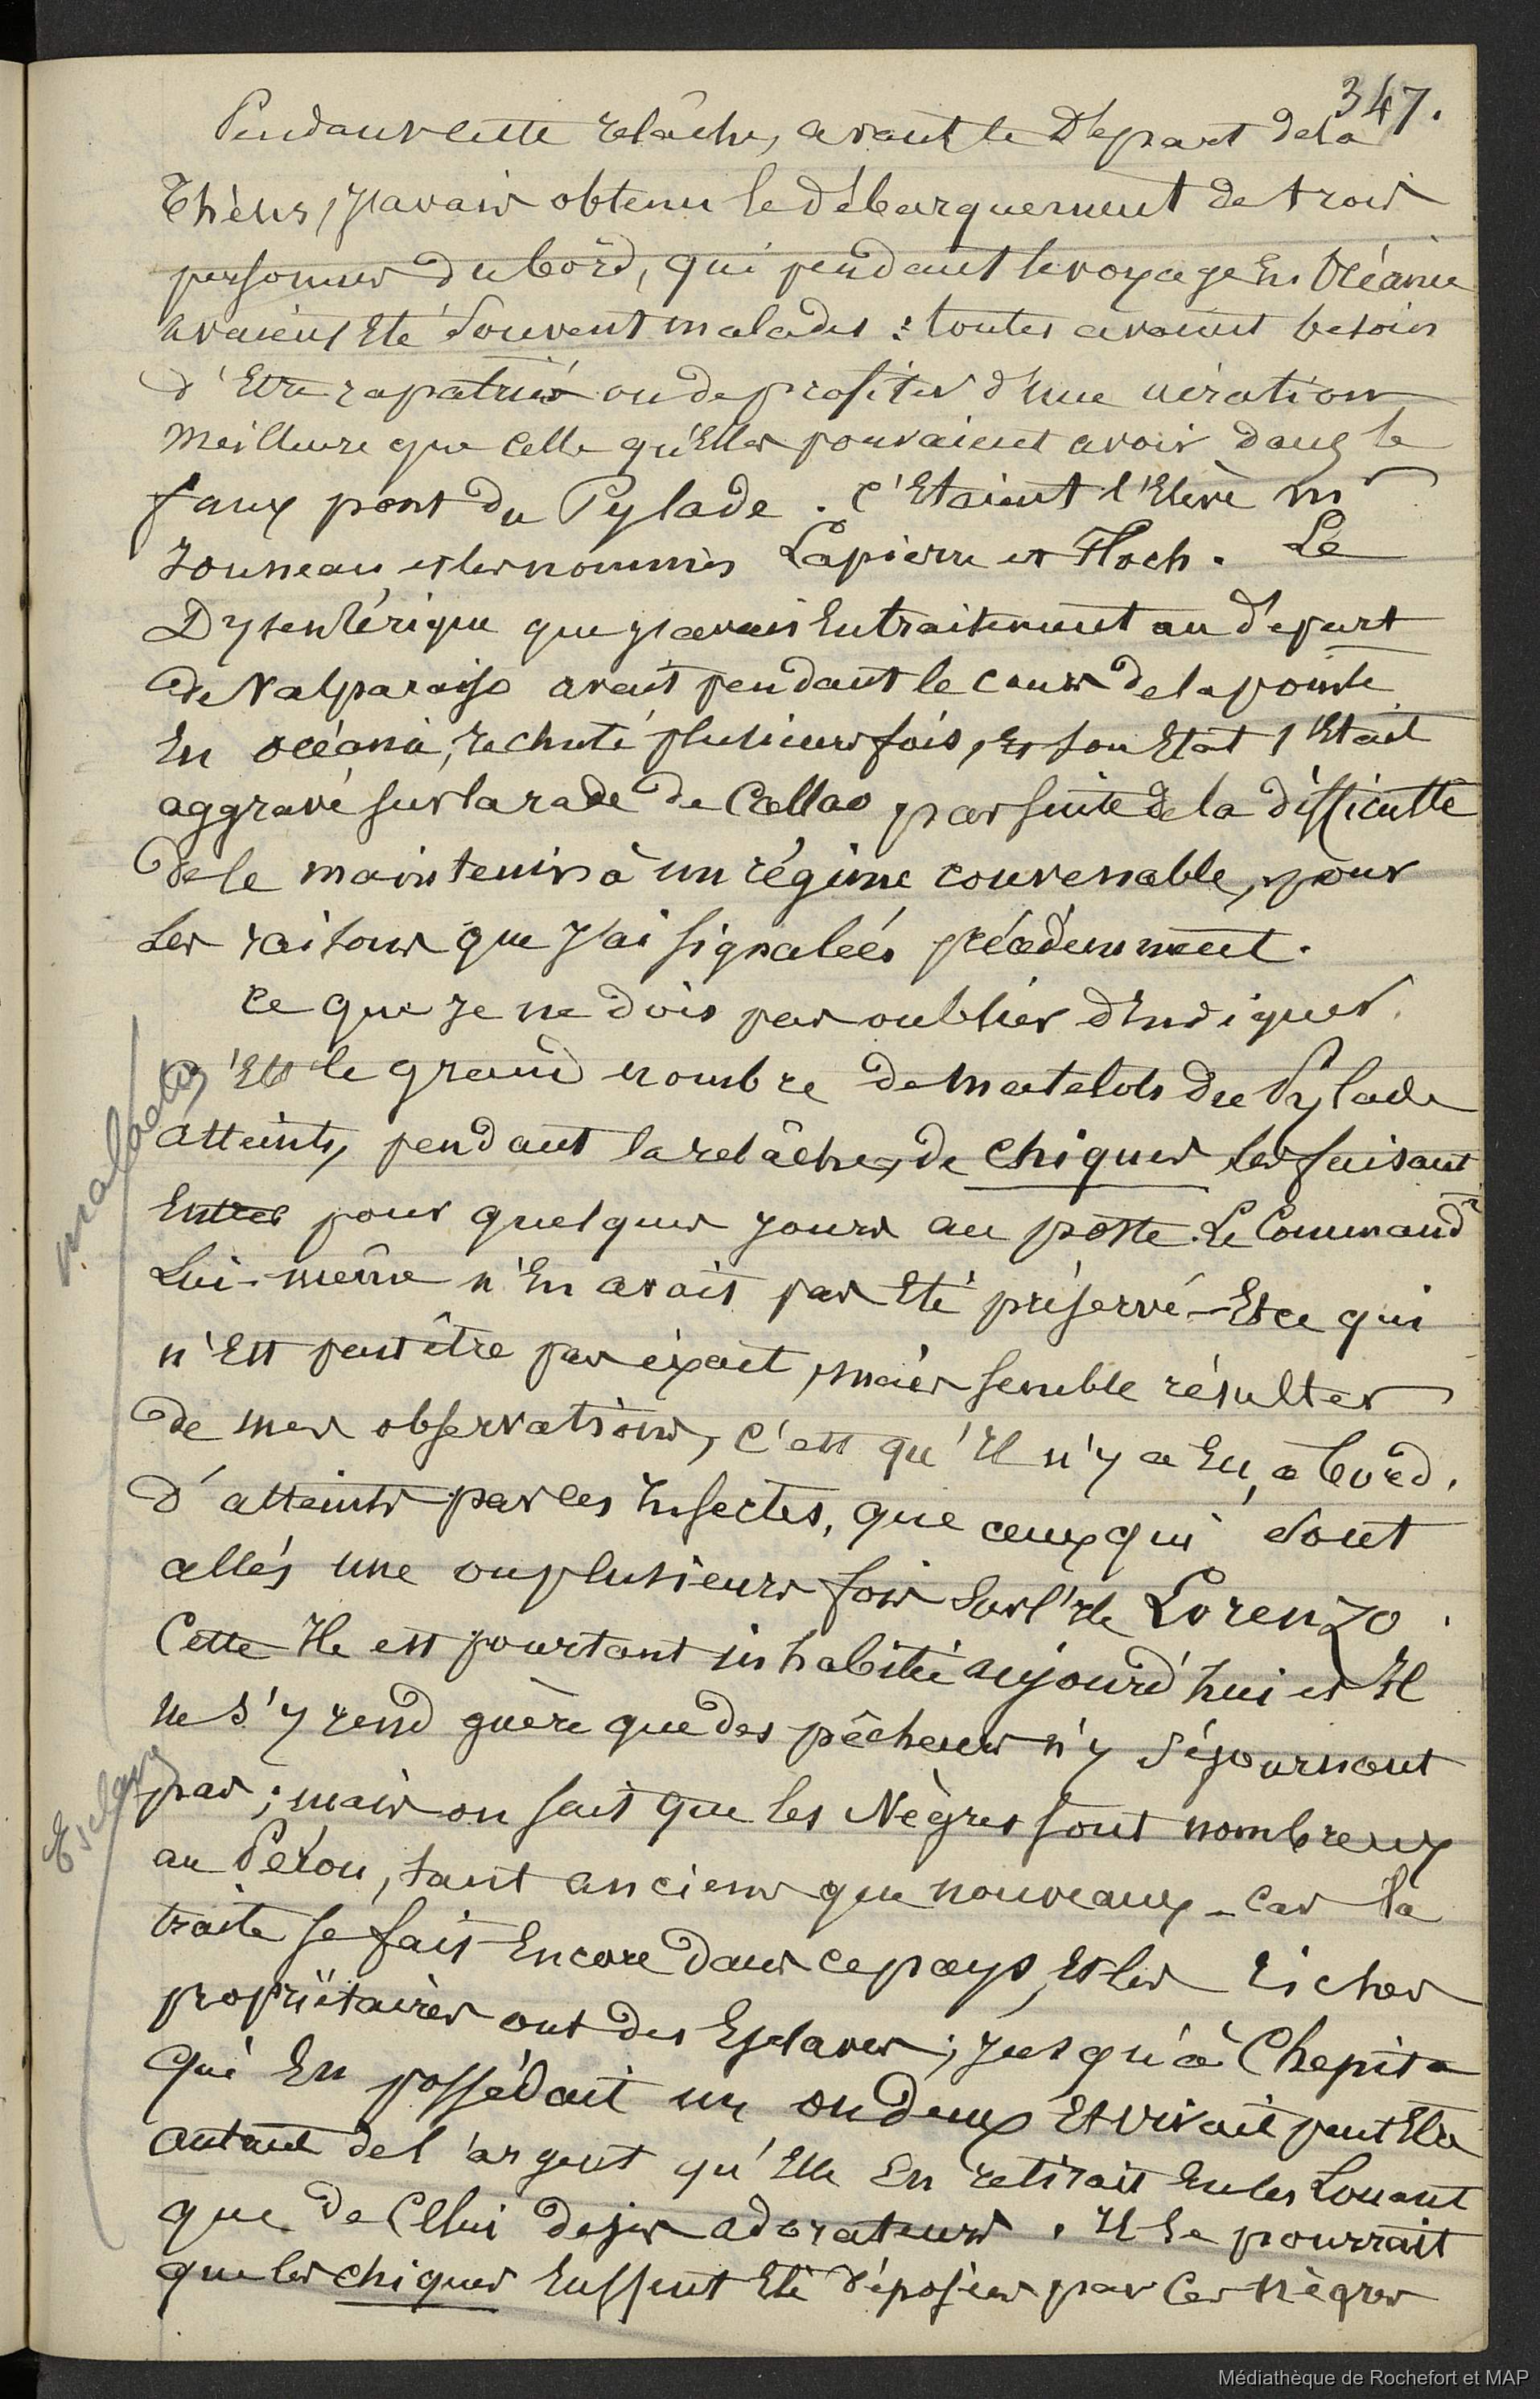 347.
Pendant cette relâche, avant le Départ de la
Théhis, j'avais obtenu le débarquement de trois
personnes du bord, qui pendant le voyage En Océanie
avaient Eté souvent malades : toutes avaient besoin
d'Etre rapatriés ou de profiter d'une aération
meilleure que celle qu'Elles pouvaient avoir dans le
faux pont du Pylade. C'Etaient l'Elève Mr
Jouneau et les nommés Lapierre et Floch. Le
Dysentérique que j'avais En traitement au départ
de Valparaiso avait pendant le cours de la pointe
En océanie, rechuté plusieurs fois, Et son Etat s'Etait
aggravé sur la rade de Callao par suite de la difficulté
de le maintenir à un régime convenable, pour
les raisons que j'ai signalées précédemment.
Ce que je ne dois pas oublier d'Indiquer,
c'Est le grand nombre de matelots du Pylade
atteints, pendant la relâche, de chiques les faisant
Entrer pour quelques jours au poste. Le Commandt
Lui-même n'En avait pas Eté préservé - Et ce qui
n'Est peut être pas éxact, mais semble résulter
de mes observations, c'est qu'Il n'y a Eu, à bord,
d'atteints par les Insectes, que ceux qui sont
allés une ou plusieurs fois sur l'Ile Lorenzo.
Cette Ile est pourtant inhabitée aujourd'hui et Il
ne s'y rend guère que des pêcheurs n'y séjournant
pas ; mais on sait que les Nègres sont nombreux
au Pérou, tant anciens que nouveaux - car la
traite se fait Encore dans ce pays, Et les riches
propriétaires ont des Esclaves ; jusqu'à Chepita
qui En possédait un ou deux Et vivait peut Etre
autant de l'argent qu'Elle En retirait En les Louant
que de Celui de ses adorateurs. Il se pourrait
que les chiques Eussent Eté déposées par Ces nègres
maladies
Esclavg
Médiathèque de Rochefort et MAP